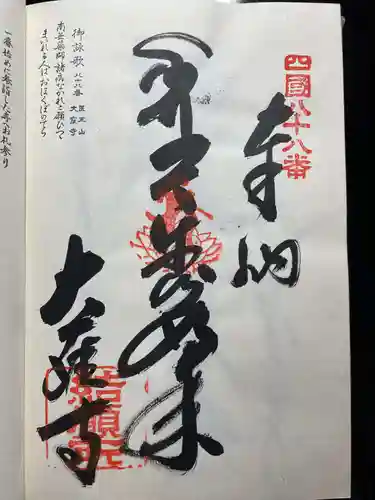 四國八十八番
奉納
如来
大窪寺
結願所
御詠歌 八十八番 医王山 大窪寺
南無薬師諸病なかれと願ひつゝ
まいれる人はおほくぼのてら
一番始めに参詣した寺へお礼参り